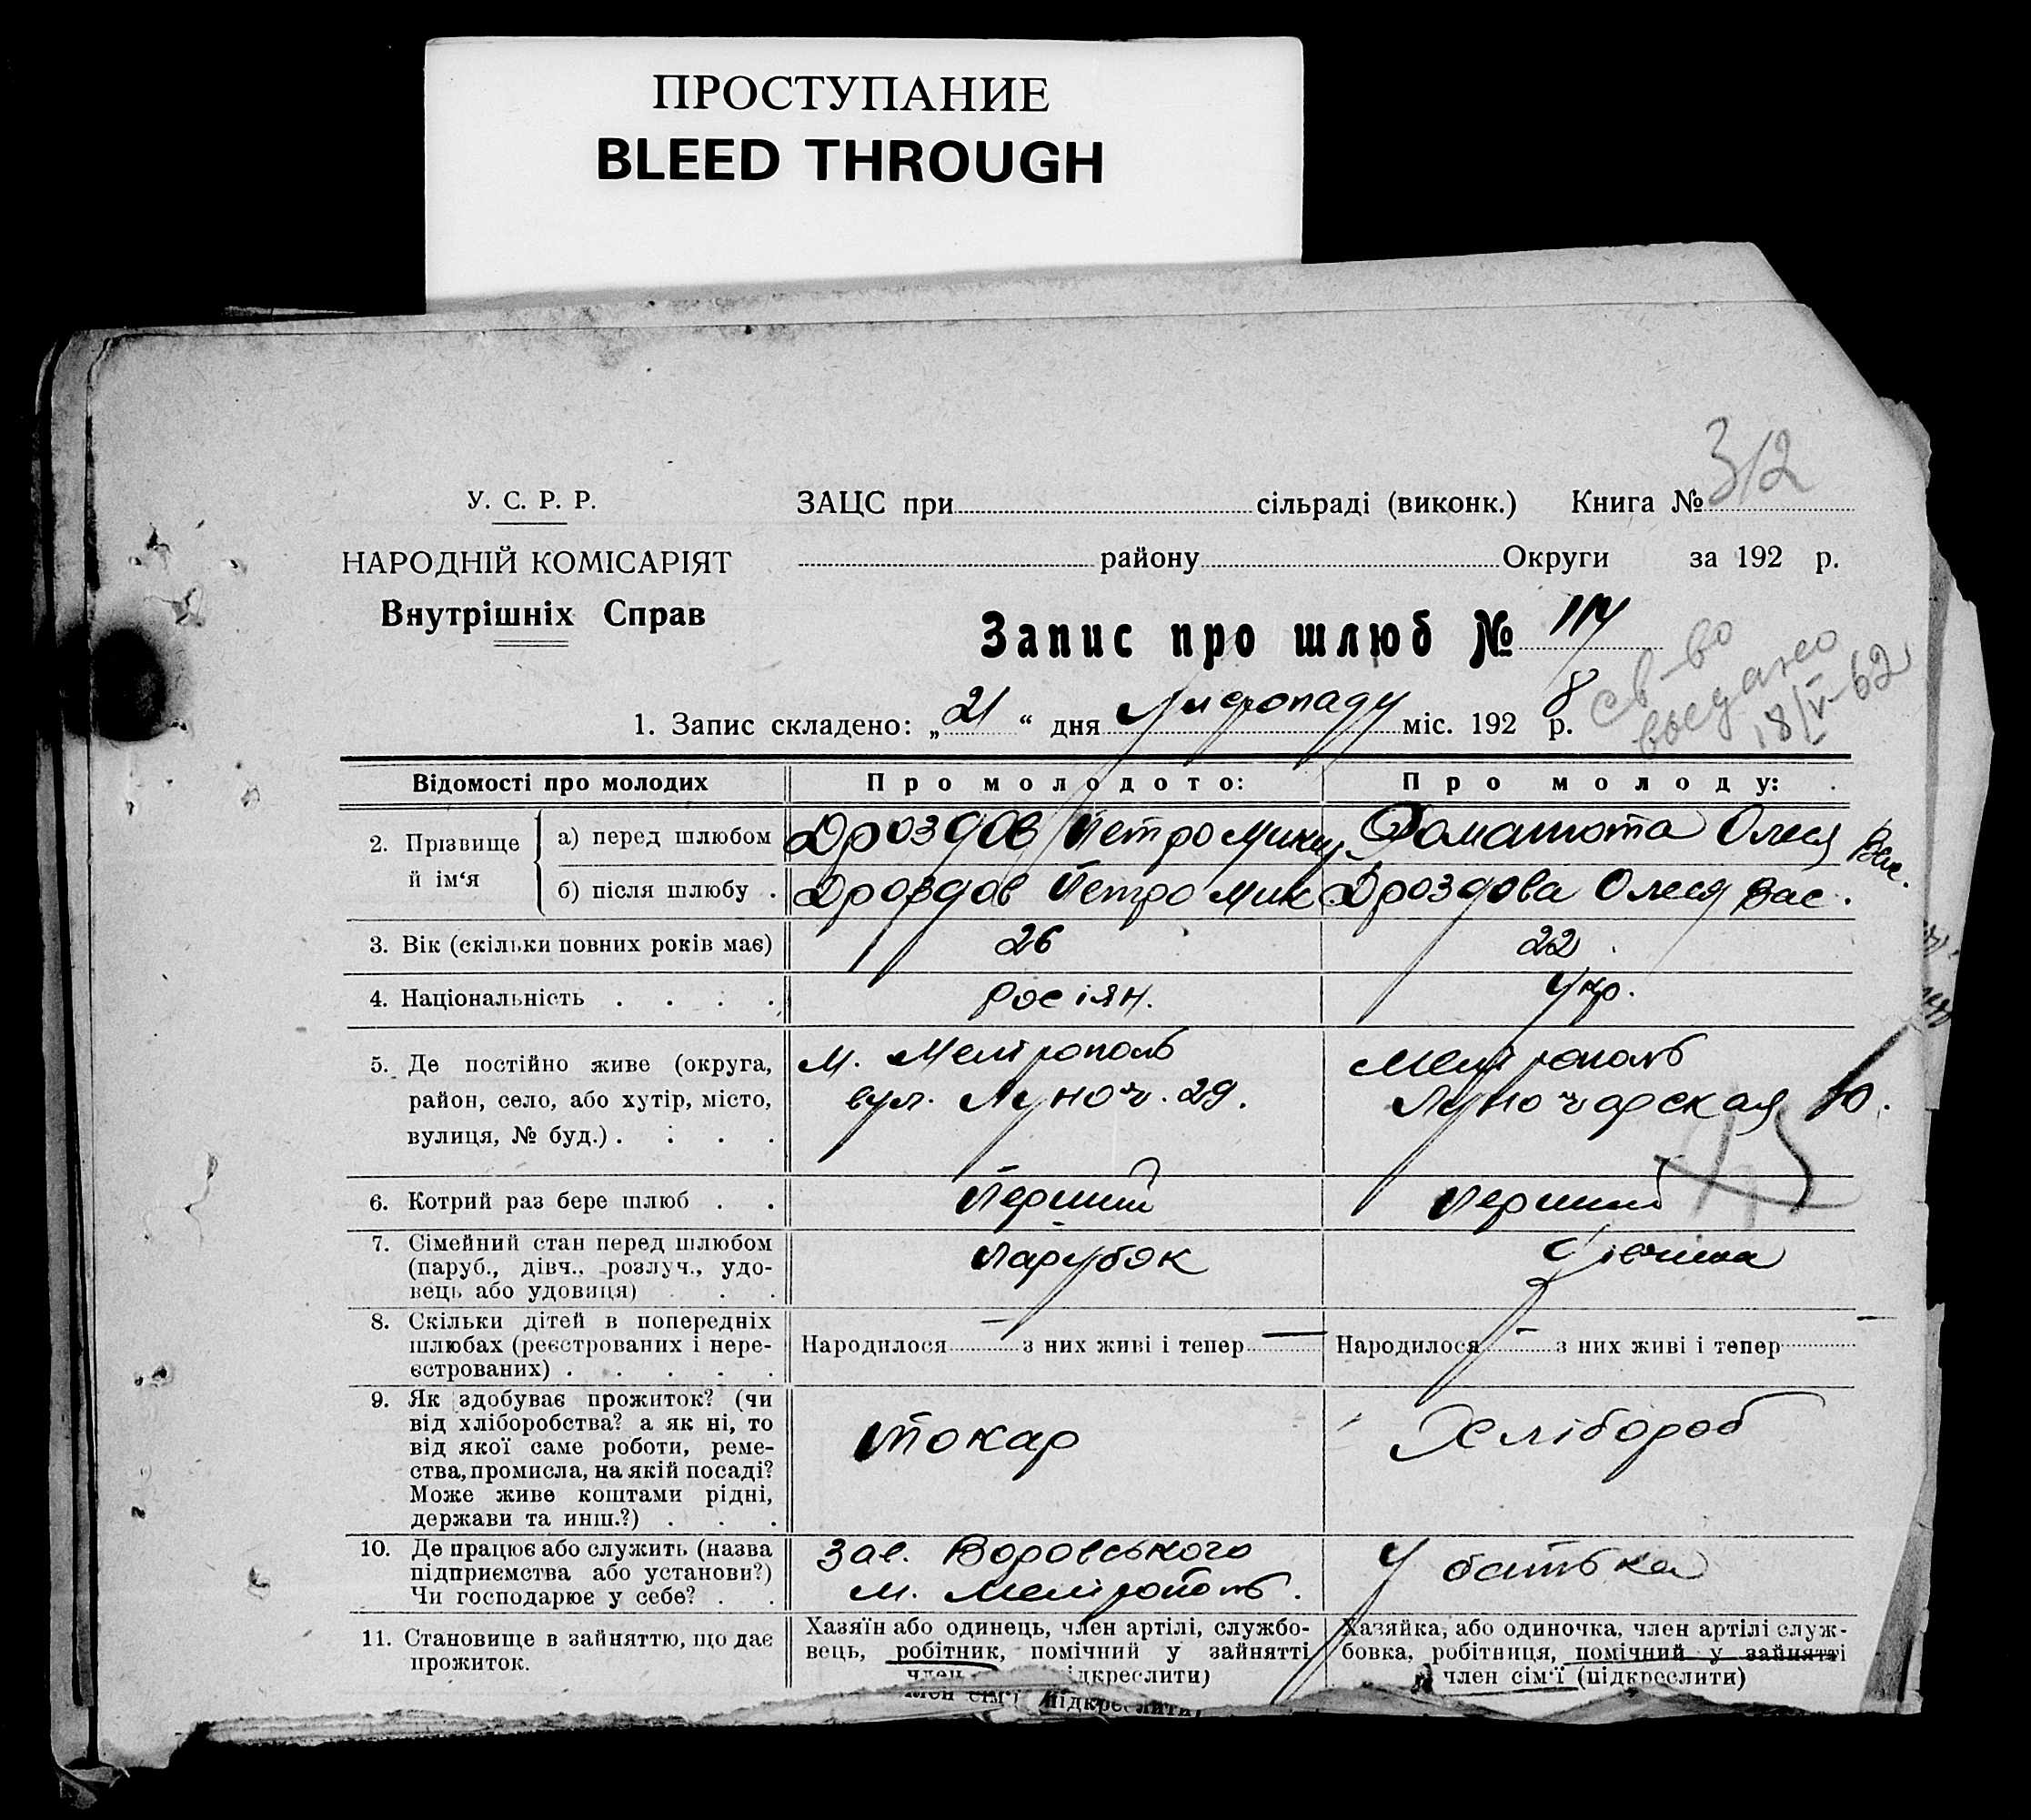 ПРОСТУПАНИЕ
BLEED THROUGH
312
У. С. Р. Р.
ЗАЦС при сільраді (виконк.) Книга №
НАРОДНІЙ КОМІСАРІЯТ
району Округи за 192 р.
Внутрішніх Справ
Запис про шлюб № 114
св-во
выдано
18/V-62
1. Запис складено: „21“ дня Листопаду міс. 1928 р.
Відомості про молодих Про молодого: Про молоду:
2. Прізвище й ім‘я
а) перед шлюбом Дроздов Петро Мики Олеся Вас.
б) після шлюбу . Дроздов Петро Мик Дроздова Олеся Вас.
3. Вік (скільки повних років має) 26 22
4. Національність . . . . росіян. Укр.
5. Де постійно живе (округа, м. Мелітополь Мелітополь
район, село, або хутір, місто, вул. Луноч. 29. Луночарская 10.
вулиця, № буд.) . . . .
45
6. Котрий раз бере шлюб . . Перший Перший
7. Сімейний стан перед шлюбом Парубок Дівчина
(паруб., дівч., розлуч., удо-
вець або удовиця) . . .
8. Скільки дітей в попередніх
шлюбах (реєстрованих і нере- Народилося — з них живі і тепер — Народилося — з них живі і тепер —
єстрованих) . . . . .
9. Як здобуває прожиток? (чи
від хліборобства? а як ні, то
від якої саме роботи, реме- токар Хлібороб
ства, промисла, на якій посаді?
Може живе коштами рідні,
держави та инш.?) . . .
10. Де працює або служить (назва Зав. Воровського У батька
підприємства або установи?) м. Мелітополь.
Чи господарює у себе? . .
11. Становище в зайняттю, що дає
прожиток.
Хазяїн або одинець, член артілі, службо-
вець, робітник, помічний у зайнятті
член ідкреслити)
член сім‘ї підкреслити)
Хазяйка, або одиночка, член артілі служ-
бовка, робітниця, помічний у зайнятті
член сім‘ї (підкреслити)